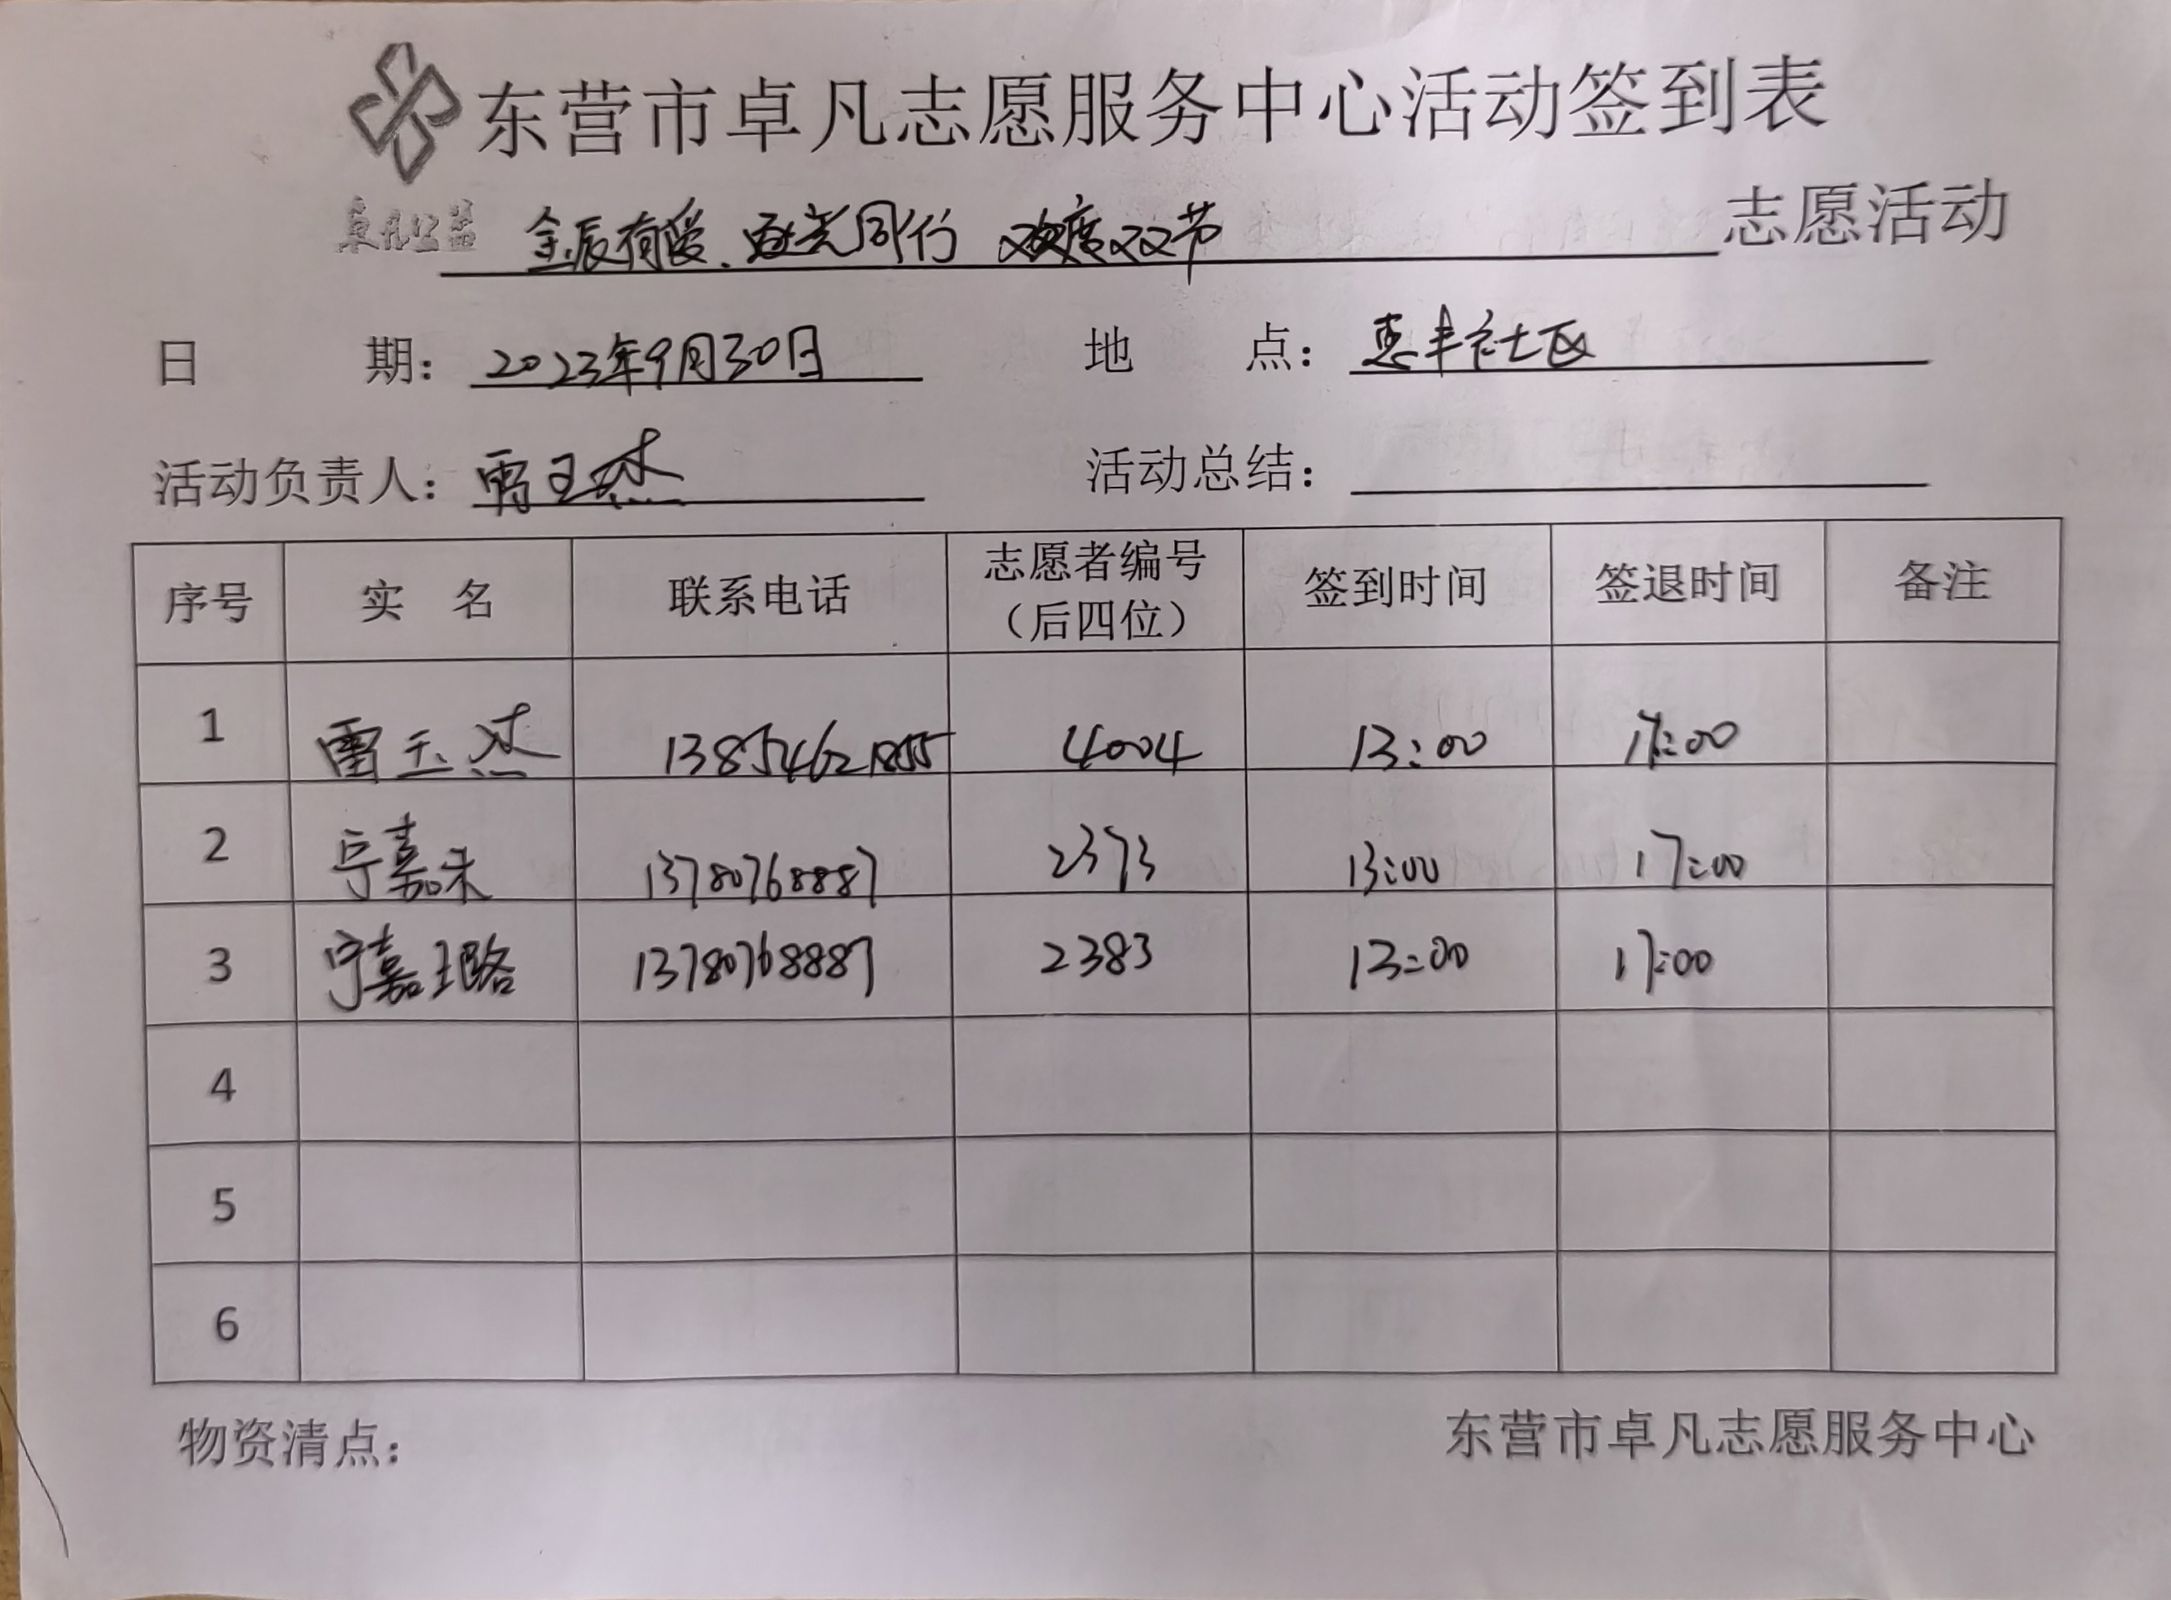 东营市卓凡志愿服务中心活动签到表
卓凡公益
金辰有爱.逐光同行 欢度双节 志愿活动
日 期：2023年9月30日 地 点：惠丰社区
活动负责人：雷玉杰 活动总结：
序号 实 名 联系电话 志愿者编号（后四位） 签到时间 签退时间 备注
1 雷玉杰 13854621855 4004 13:00 17:00
2 宁嘉禾 13780768887 2373 13:00 17:00
3 宁嘉璐 13780768887 2383 13:00 17:00
4
5
6
物资清点： 东营市卓凡志愿服务中心